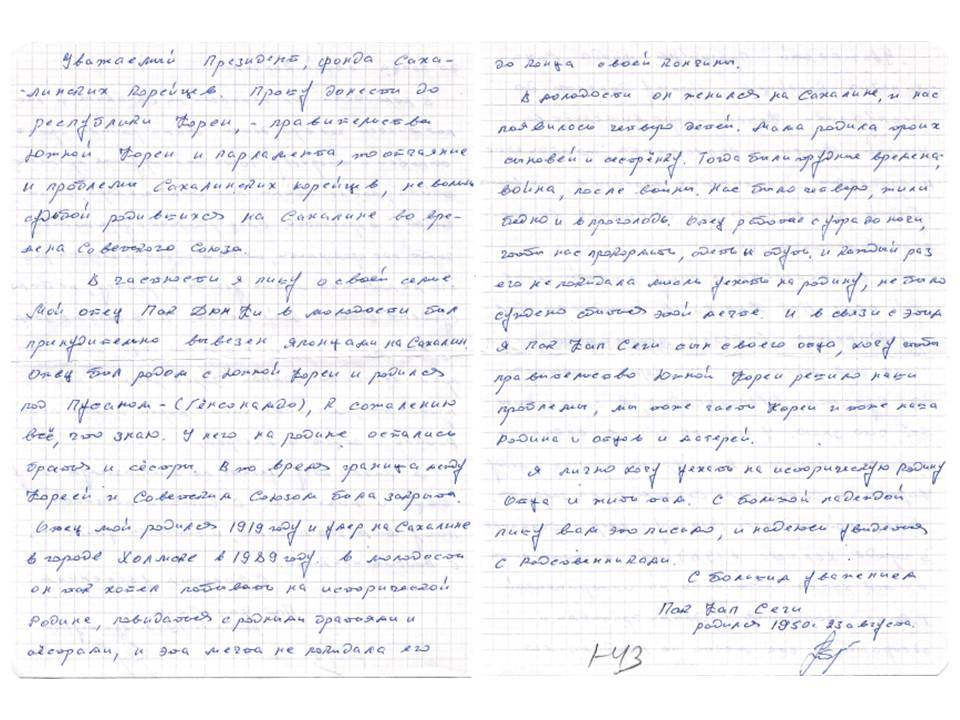 Уважаемый Президент, фонда Саха-
-линских корейцев. Прошу донести до
республики Кореи, - правительства
Южной Кореи и парламента, то отчаяние
и проблемы Сахалинских корейцев, не волей
судьбой родившихся на Сахалине во вре-
мена Советского Союза.
В частности я пишу о своей семье.
Мой отец Пак Дюн Ди в молодости был
принудительно вывезен японцами на Сахалин.
Отец был родом с Южной Кореи и родился
под Пусаном - (Генсонамдо), к сожалению
всё, что знаю. У него на родине остались
братья и сёстры. В то время граница между
Кореей и Советским Союзом была закрыта.
Отец мой родился 1919 году и умер на Сахалине
в городе Холмске в 1989 году. в молодости
он так хотел побывать на исторической
Родине, повидаться с родными братьями и
сёстрами, и эта мечта не покидала его
до конца своей кончины.
В молодости он женился на Сахалине, и нас
появилось четверо детей. Мама родила троих
сыновей и сестрёнку. Тогда были трудные времена,
война, после войны. Нас было четверо, жили
бедно и впроголодь. Отец работал с утра до ночи,
чтобы нас прокормить, одеть и обуть. и каждый раз
его не покидала мысль уехать на родину, не было
суждено сбыться этой мечте. И в связи с этим
я Пак Кап Сеги сын своего отца, хочу чтобы
правительство Южной Кореи решило наши
проблемы, мы тоже часть Кореи и тоже наша
Родина и отцов и матерей.
Я лично хочу уехать на историческую Родину
Отца и жить там. С большой надеждой
пишу вам это письмо, и надеюсь увидеться
с Родственниками.
С большим уважением
Пак Кап Сеги
родился 1950г. 23 августа.